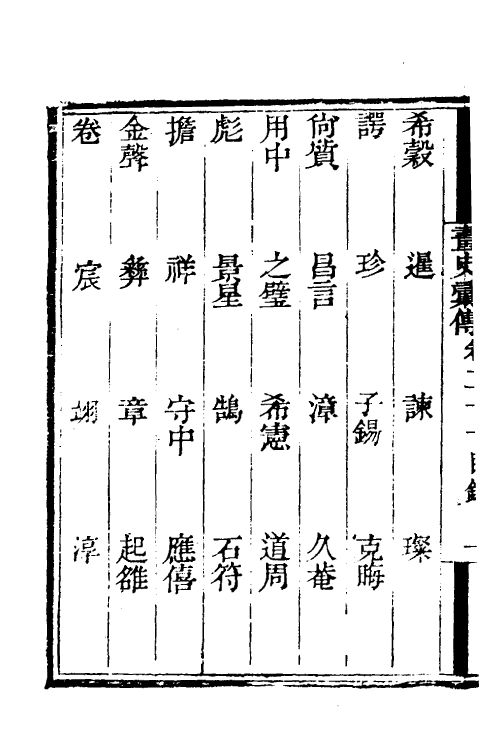 畫史彙傳卷二十一目錄 一
希縠 暹 諫 璨
諤 珍 子錫 克晦
尙質 昌言 漳 久菴
用中 之璧 希憲 道周
彪 景星 鵠 石符
擔 祥 守中 應僖
金聲 彝 章 起雒
卷 宸 翊 淳